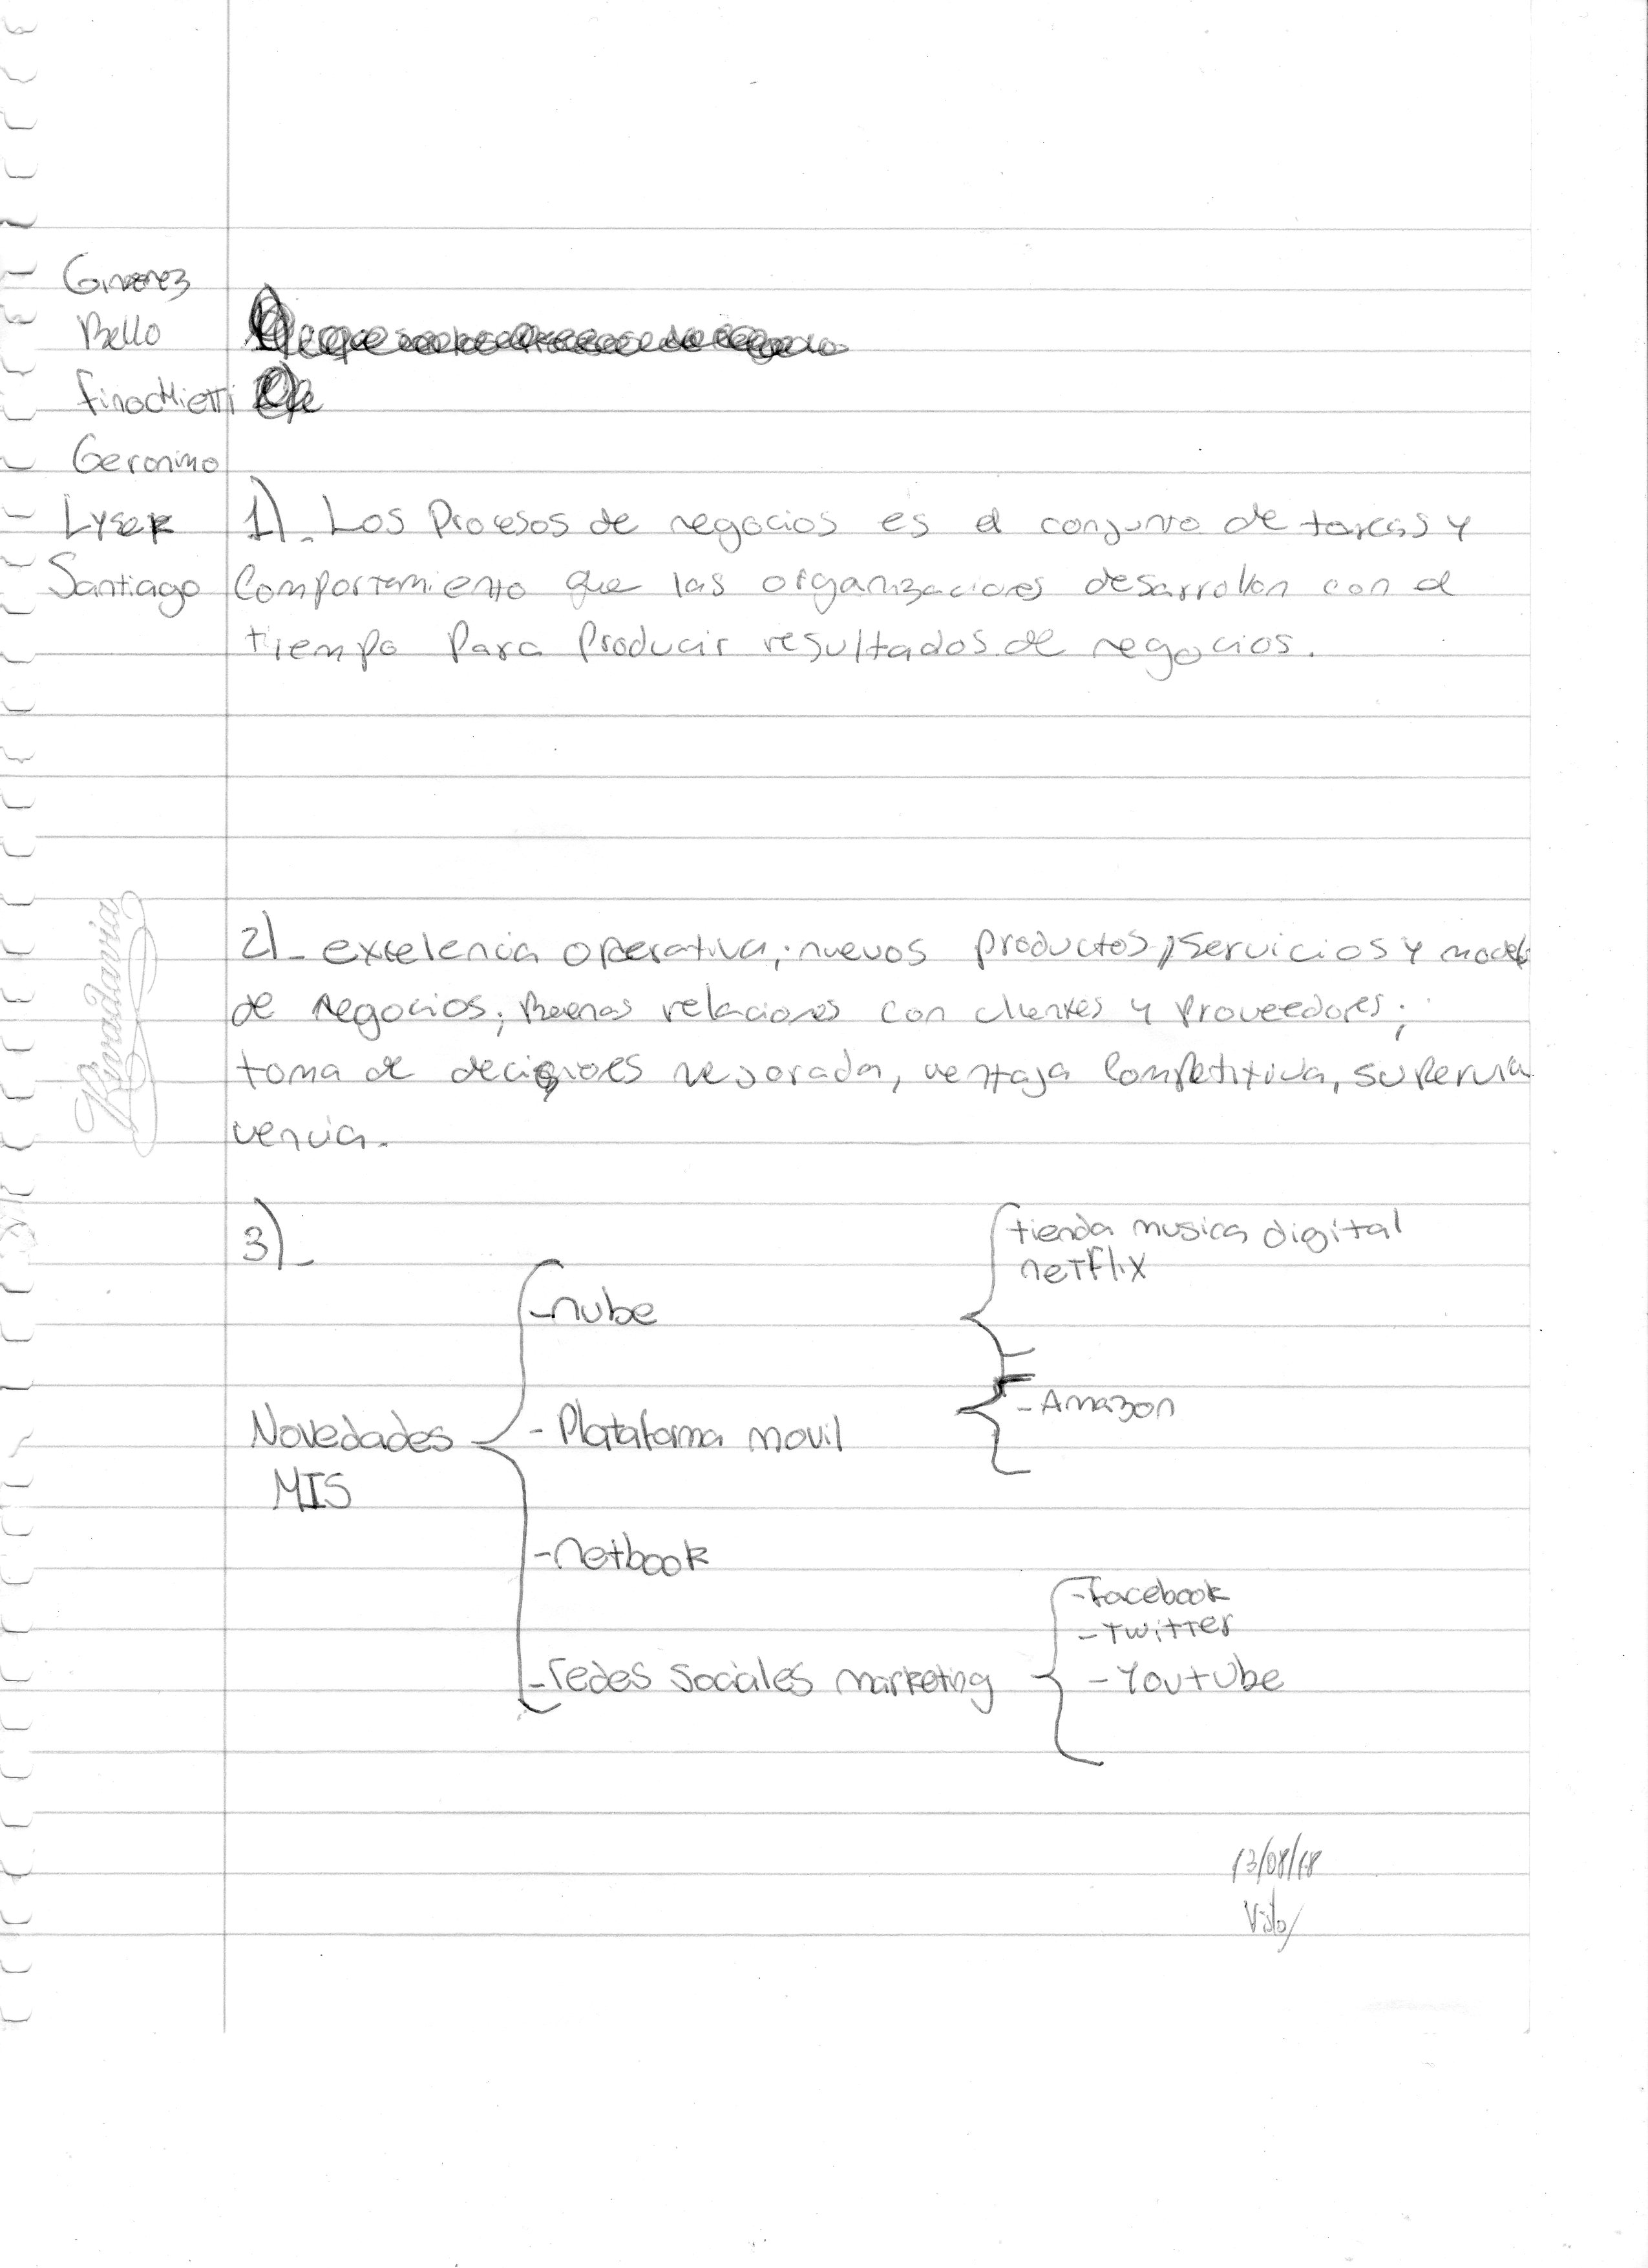 Gimenez
Bello
Finochietti
Geronimo
Lyser
Santiago
1)_ Los Procesos de negocios es el conjunto de tareas y
Comportamiento que las organizaciones desarrollan con el
tiempo para Producir resultados de negocios.
Rivadavia
2)_ excelencia operativa; nuevos productos, servicios y modelos
de negocios; Buenas relaciones con clientes y proveedores;
toma de deciciones mejorada, ventaja Competitiva, supervi
vencia.
3)_
tienda musica digital
netflix
-nube
-Amazon
Novedades
MIS
- Plataforma movil
-netbook
-facebook
-Twitter
-redes sociales marketing
-Youtube
13/08/18
Visto